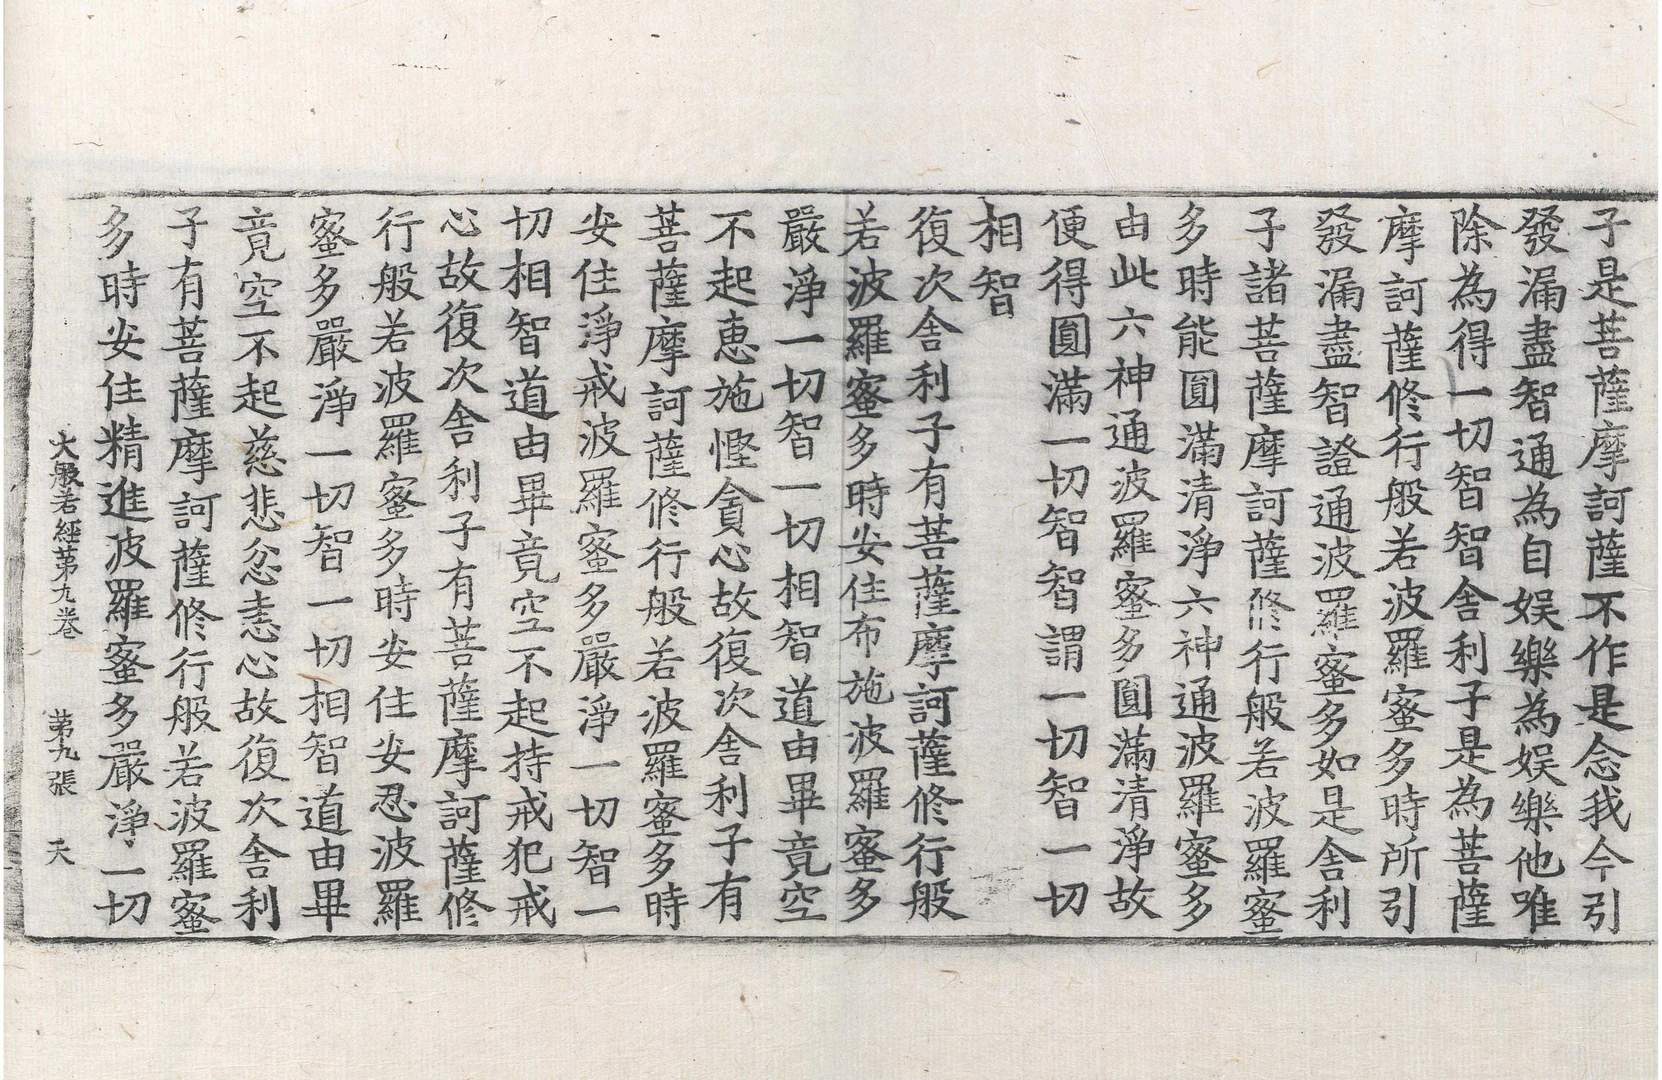 子是菩薩摩訶薩不作是念我今引
發漏盡智通為自娛樂為娛樂他唯
除為得一切智智舍利子是為菩薩
摩訶薩修行般若波羅蜜多時所引
發漏盡智證通波羅蜜多如是舍利
子諸菩薩摩訶薩修行般若波羅蜜
多時能圓滿清淨六神通波羅蜜多
由此六神通波羅蜜多圓滿清淨故
便得圓滿一切智智謂一切智一切
相智
復次舍利子有菩薩摩訶薩修行般
若波羅蜜多時安住布施波羅蜜多
嚴淨一切智一切相智道由畢竟空
不起惠施慳貪心故復次舍利子有
菩薩摩訶薩修行般若波羅蜜多時
安住淨戒波羅蜜多嚴淨一切智一
切相智道由畢竟空不起持戒犯戒
心故復次舍利子有菩薩摩訶薩修
行般若波羅蜜多時安住安忍波羅
蜜多嚴淨一切智一切相智道由畢
竟空不起慈悲忿恚心故復次舍利
子有菩薩摩訶薩修行般若波羅蜜
多時安住精進波羅蜜多嚴淨一切
大般若經第九卷 第九張 天